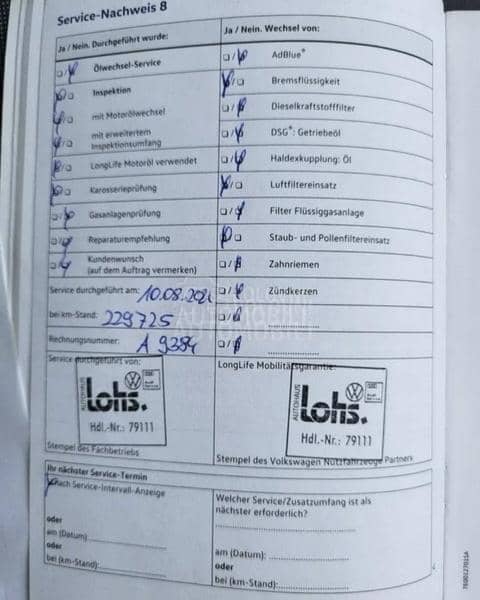 Service-Nachweis 8
Ja / Nein. Durchgeführt wurde:
Ölwechsel-Service
Inspektion
mit Motorölwechsel
mit erweitertem
Inspektionsumfang
LongLife Motoröl verwendet
Karosserieprüfung
Gasanlagenprüfung
Reparaturempfehlung
Kundenwunsch
(auf dem Auftrag vermerken)
Service durchgeführt am: 10.08.202
bei km-Stand: 229725
Rechnungsnummer: A 9384
Service durchgeführt von:
AUTOHAUS
Lohs.
Hdl.-Nr.: 79111
Stempel des Fachbetriebs
Ja / Nein. Wechsel von:
AdBlue*
Bremsflüssigkeit
Dieselkraftstofffilter
DSG*: Getriebeöl
Haldexkupplung: Öl
Luftfiltereinsatz
Filter Flüssiggasanlage
Staub- und Pollenfiltereinsatz
Zahnriemen
Zündkerzen
LongLife Mobilitätsgarantie:
AUTOHAUS
Lohs.
Hdl.-Nr.: 79111
Stempel des Volkswagen Nutzfahrzeuge Partners
Ihr nächster Service-Termin
Nach Service-Intervall-Anzeige
oder
am (Datum):
oder
bei (km-Stand):
Welcher Service/Zusatzumfang ist als
nächster erforderlich?
am (Datum):
oder
bei (km-Stand):